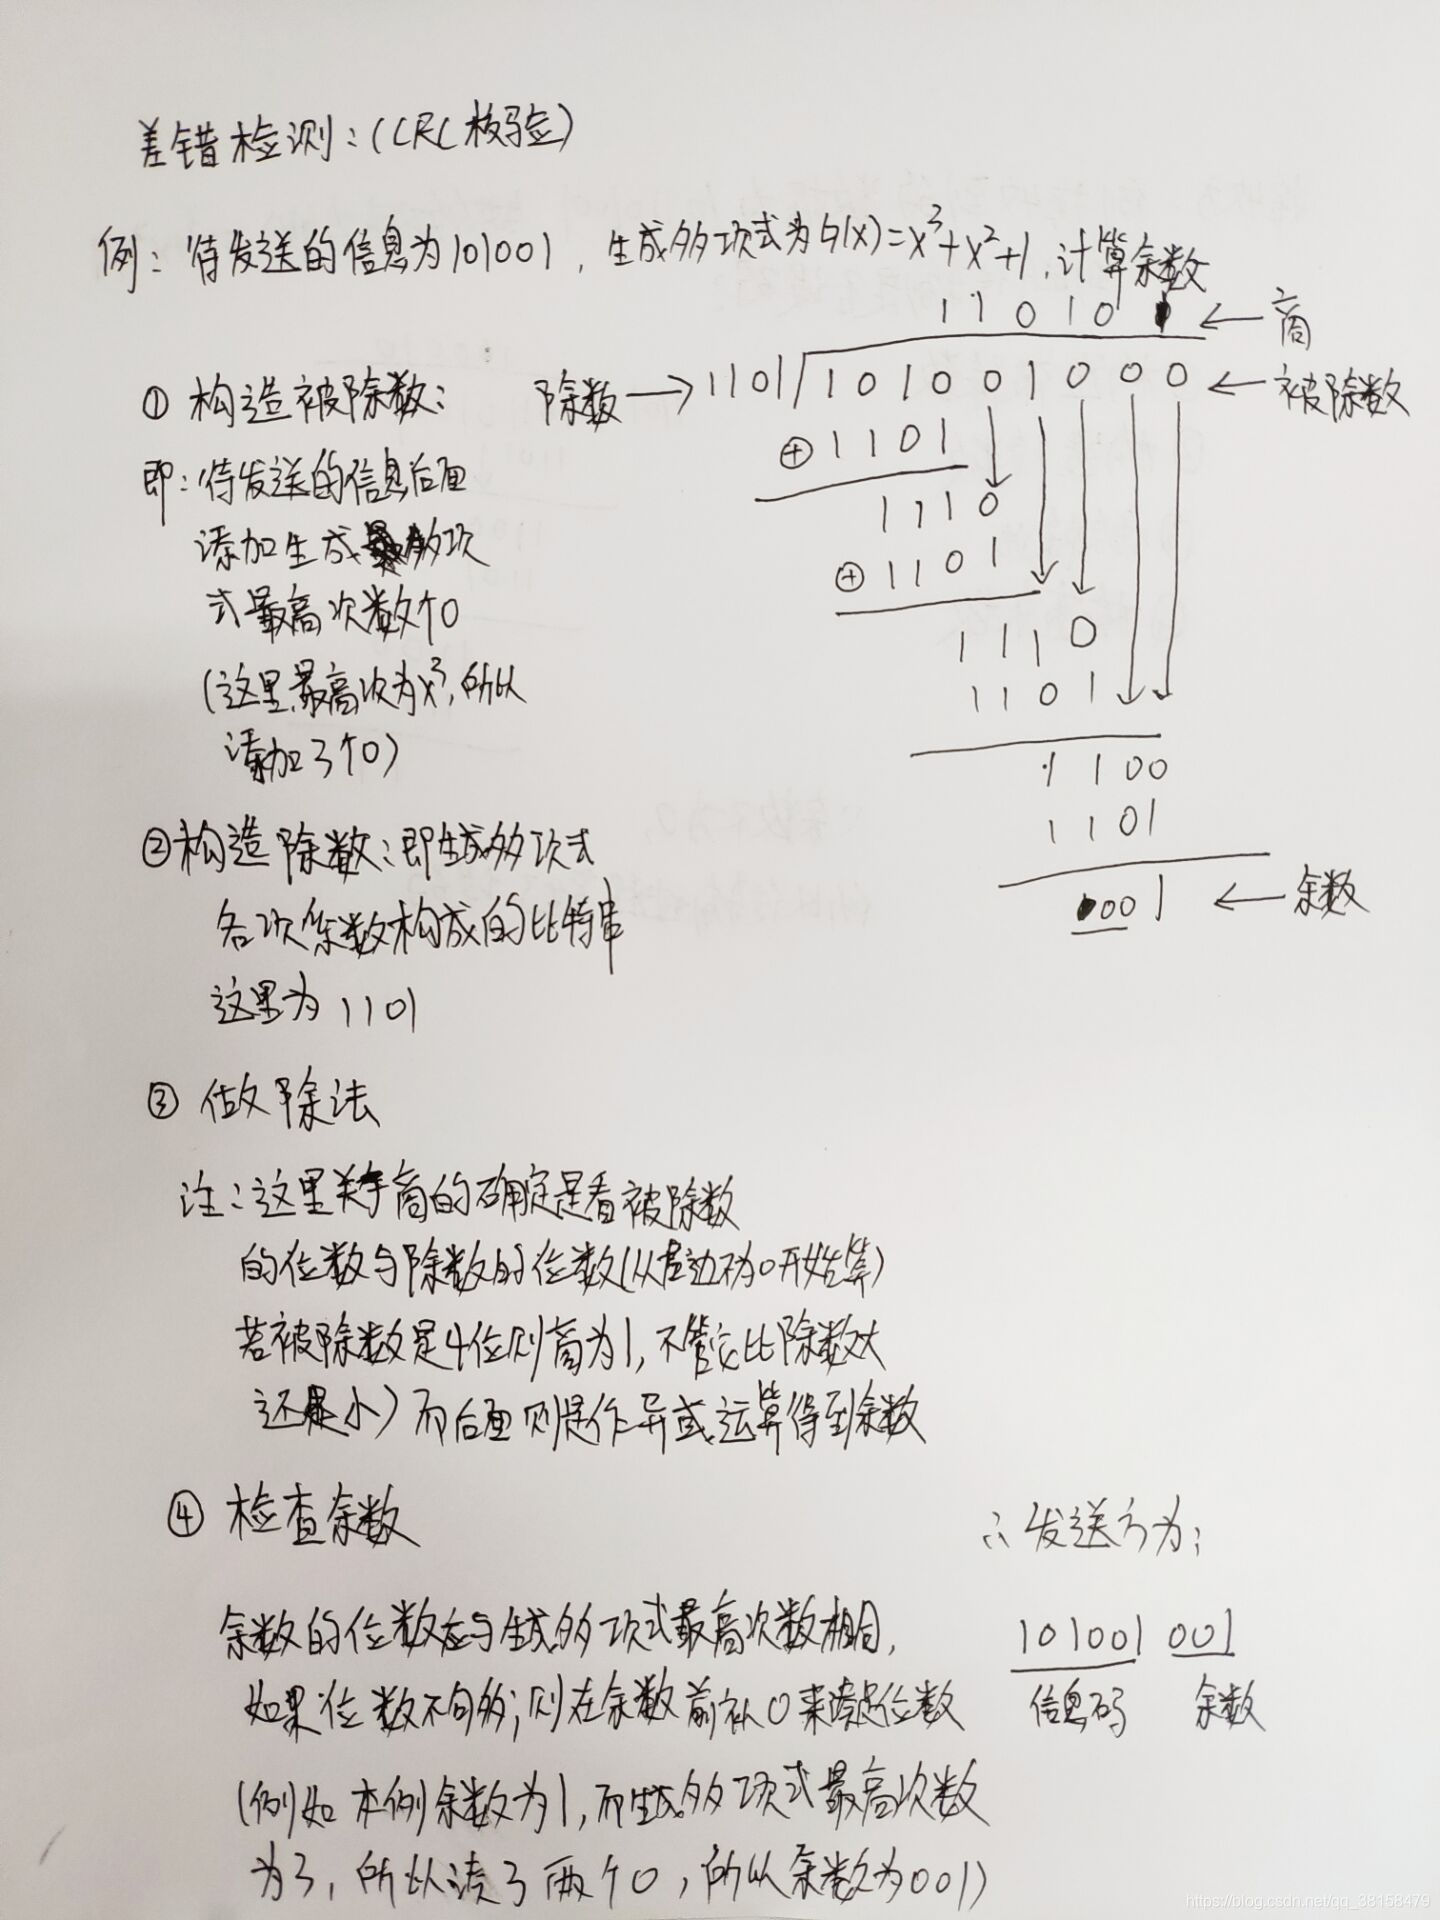 差错检测：(CRC校验)
例：待发送的信息为101001，生成多项式为G(x)=x³+x²+1，计算余数
110101 ← 商
① 构造被除数：
除数→1101 101001000 ← 被除数
⊕1101
即：待发送的信息后面
1110
添加生成多项
⊕1101
式最高次数个0
1110
(这里最高次为x³，所以
1101
添加3个0)
1100
②构造除数：即生成多项式
1101
各次系数构成的比特串
001 ← 余数
这里为1101
③ 做除法
注：这里关于商的确定是看被除数
的位数与除数的位数(从左边不为0开始算)
若被除数是4位则商为1，不管它比除数大
还是小）而后面则是作异或运算得到余数
④ 检查余数
∴发送方为：
余数的位数应与生成多项式最高次数相同，
101001 001
如果位数不同的多；则在余数前补0来凑足位数
信息码 余数
(例如本例余数为1，而生成多项式最高次数
为3，所以凑了两个0，所以余数为001)
https://blog.csdn.net/qq_38158479